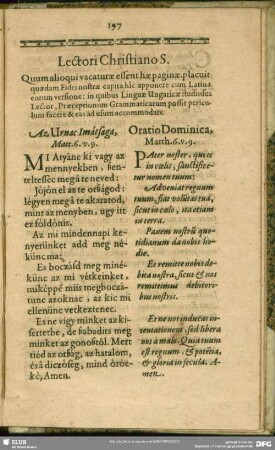 197
Lectori Christiano S.
Quum alioqui vacaturæ essent hæ paginæ, placuit
quædam Fidei nostræ capita hic apponere cum Latina
eorum versione: in quibus Linguæ Ungaricæ studiosus
Lector, Præceptionum Grammaticarum possit pericu-
lum facere & eas ad usum accommodare.
Az Urnac Imádsága,
Matt. 6. v. 9.
MI Atyánc ki vagy az
mennyekben, szen-
teltessec megá te neved:
Jöjön el az te országod:
légyen meg á te akaratod,
mint az menyben, ugy itt
ez földönis.
Az mi mindennapi ke-
nyerünket add meg né-
künc ma;
Es boczásd meg miné-
künc az mi vétkeinket,
miképpé miis megboczá-
tunc azoknac, az kic mi
ellenünc vetkeztenec.
Es ne vigy minket az ki-
sertetbe, de szabadits meg
minket az gonosztól. Mert
tiéd az orság, az hatalom,
és á diczöség, mind örök-
ké, Amen.
Oratio Dominica,
Matth. 6. v. 9.
PAter noster, qui es
in cœlis, sanctifice-
tur nomen tuum;
Adveniat regnum
tuum, fiat volūtas tua,
sicut in cœlo, ita etiam
in terra.
Panem nostrū quo-
tidianum da nobis ho-
die.
Et remitte nobis de-
bita nostra, sicut & nos
remittimus debito-
ribus nostris.
Et ne nos inducas in
tentationem, sed libera
nos à malo. Quia tuum
est regnum, & potētia,
& gloria in secula. A-
men.
SLUB
DFG